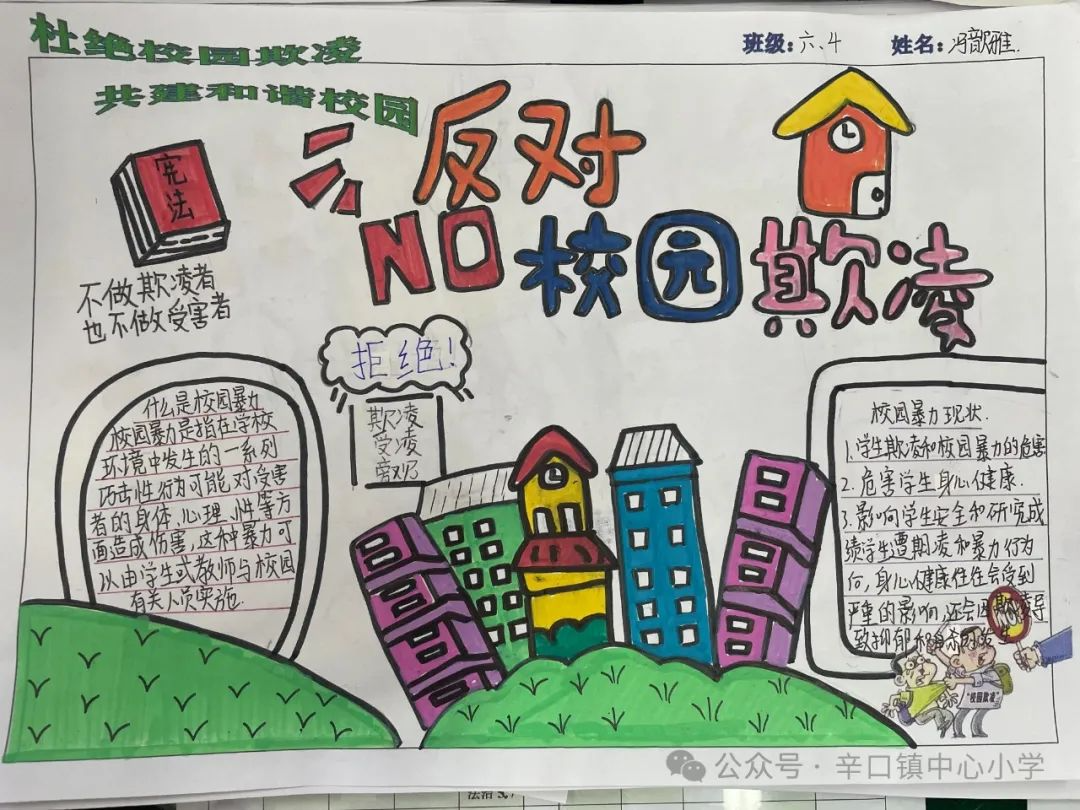 杜绝校园欺凌
共建和谐校园
班级:六、4
姓名:冯歆雅.
反对
NO 校园欺凌
宪法
不做欺凌者
也不做受害者
拒绝!
欺凌
受凌
什么是校园暴力
校园暴力是指在学校
环境中发生的一系列
攻击性行为可能,对受害
者的身体、心理、性等方
面造成伤害,这种暴力可
以由学生或教师与校园
有关人员实施.
校园暴力现状.
1.学生欺凌和校园暴力的危害
2.危害学生身心健康.
3.影响学生安全和研究成
绩学生遭期凌和暴力行为
后,身心健康往往会受到
严重的影响,还会
导
致抑郁和
"校园欺凌"
公众号·辛口镇中心小学